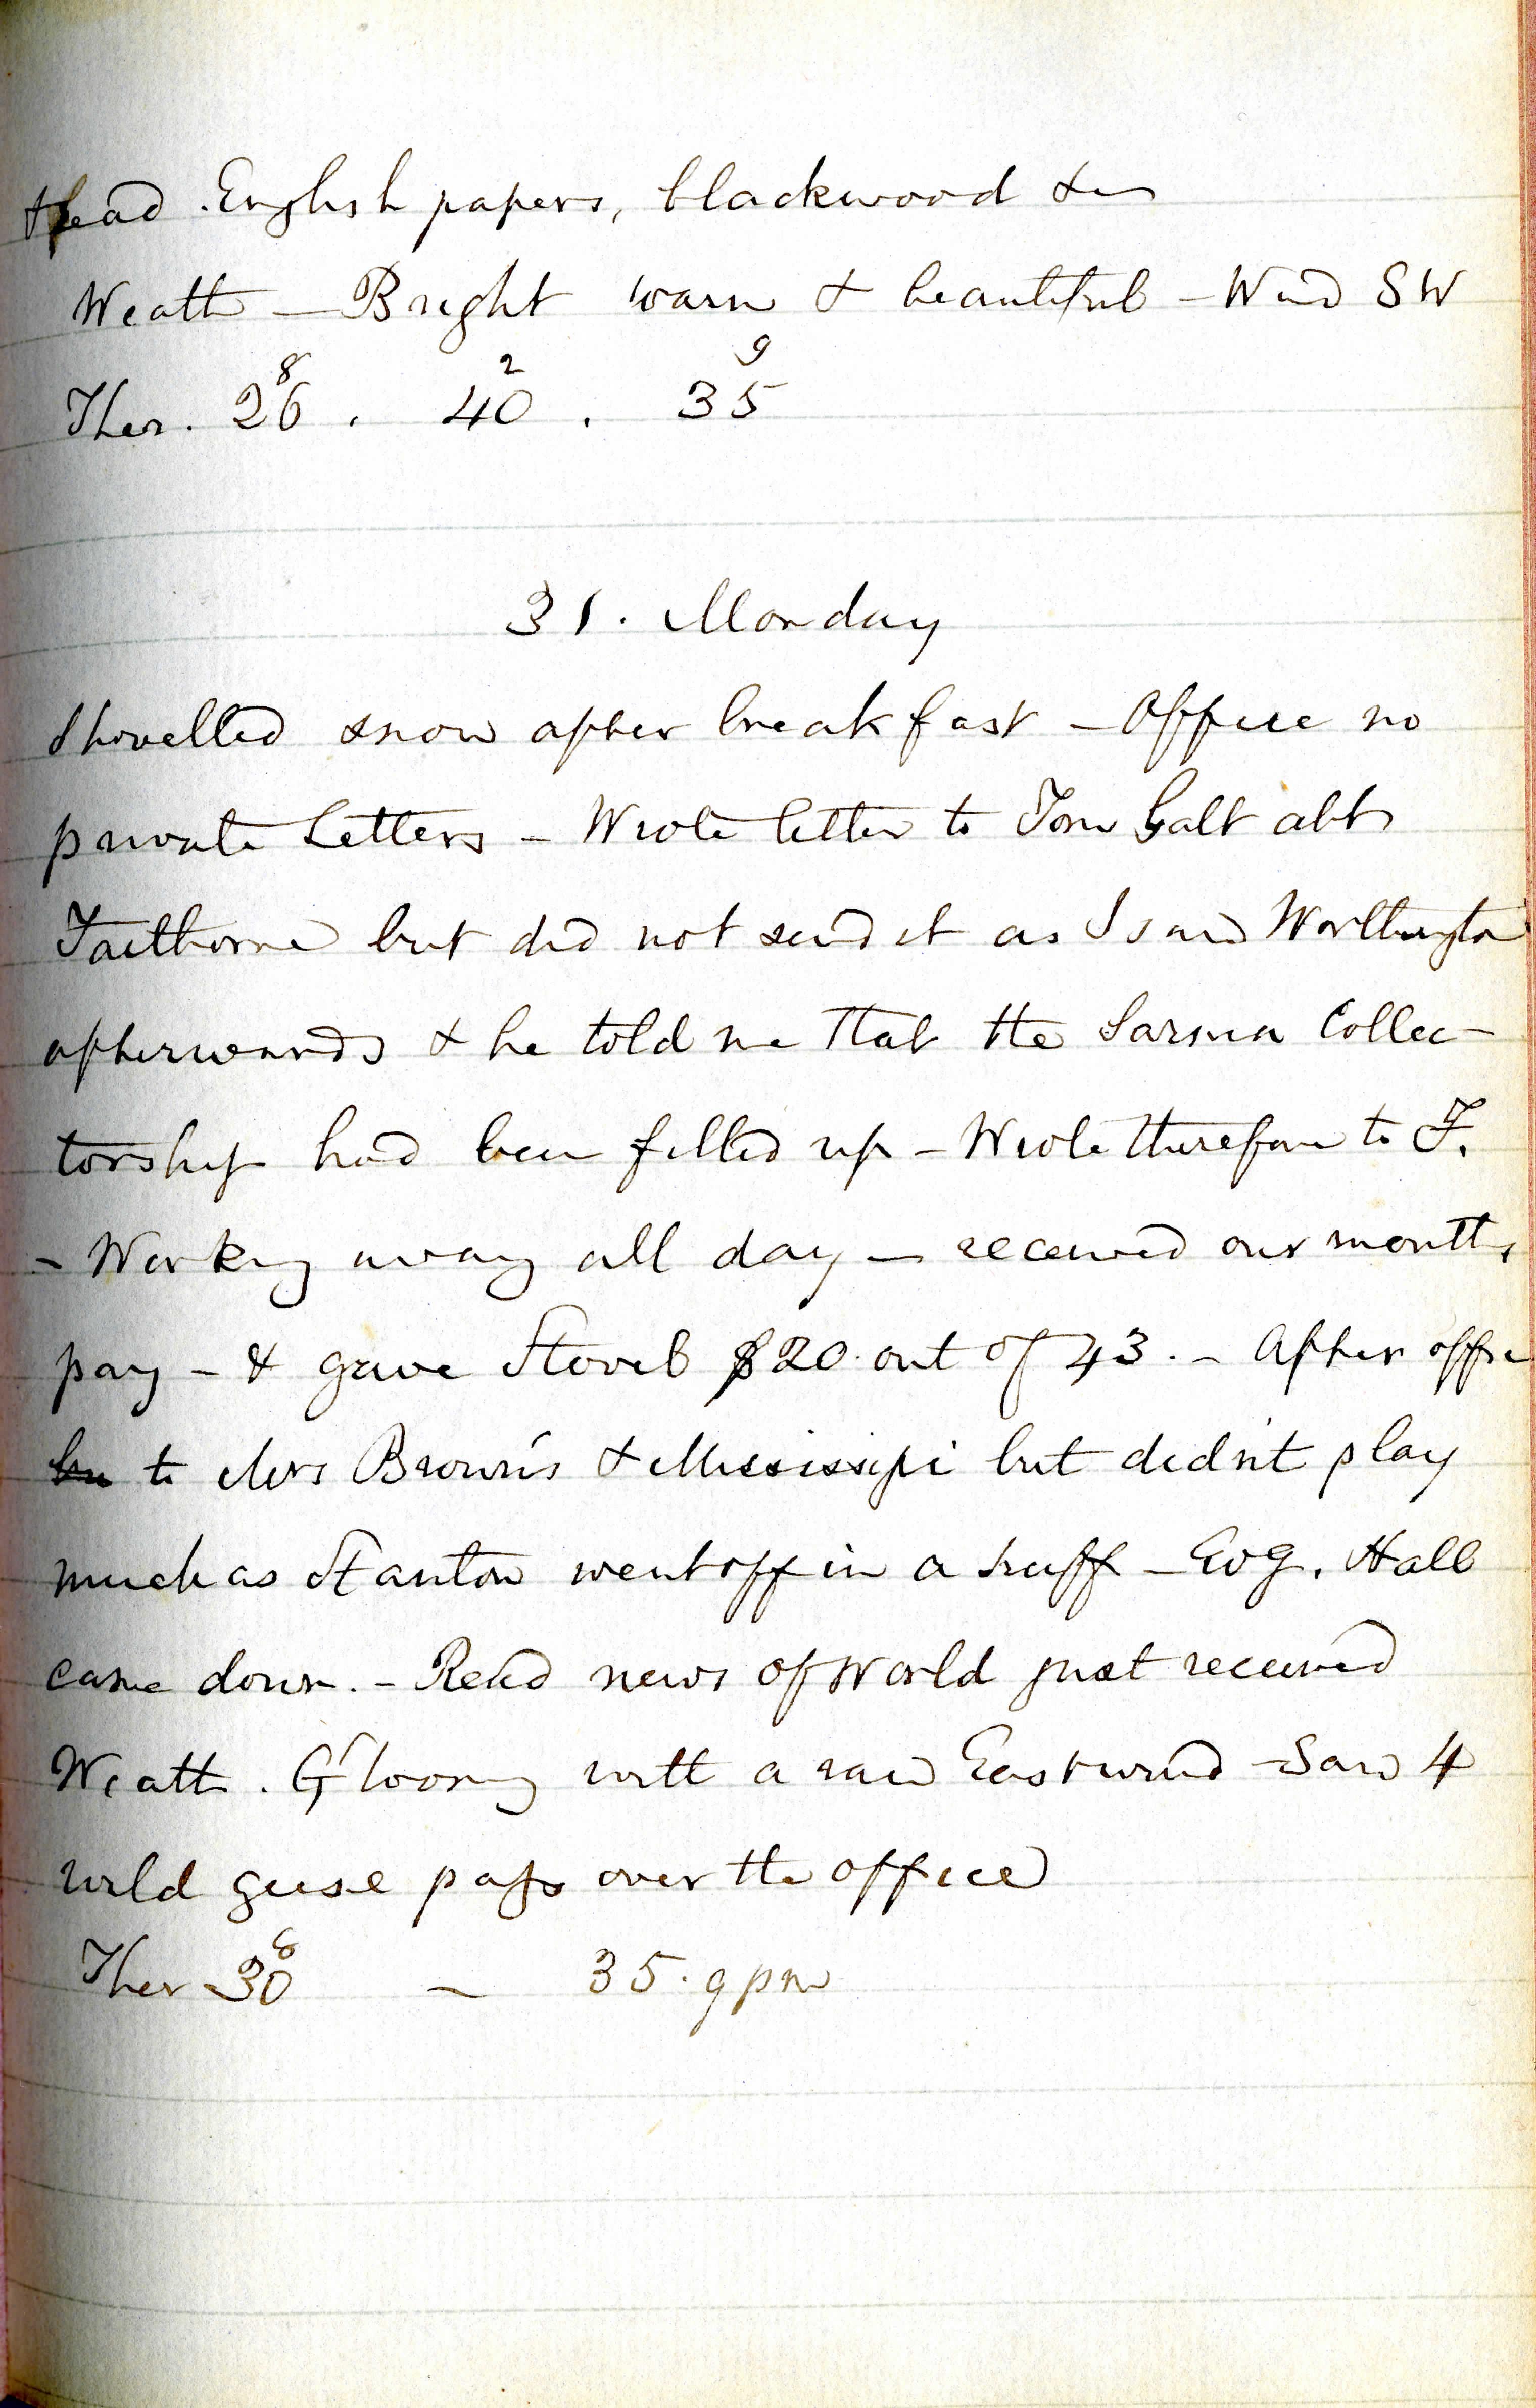 Read English papers, blackwood &c
Weath – Bright warm & beautiful – Wind SW
Ther. 26 8 . 40 2 . 35 9
31. Monday
Shovelled snow after breakfast – Office no
private Letters – Wrote letter to Tom Galt abt
Faithorne but did not send it as I saw Worthington
afterwards & he told me that the Sarnia Collec–
torship had been filled up – Wrote therefore to F.
– Working away all day – received our months
pay – & gave Stovel $20. out of 43. – After office
to Mrs Brown's & Mississipi but didn't play
much as Stanton went off in a huff – Evg. Hall
came down. – Read news of World just received
Weath. Gloomy with a raw East wind – Saw 4
wild geese pass over the office
Ther 30 8 – 35. 9 pm